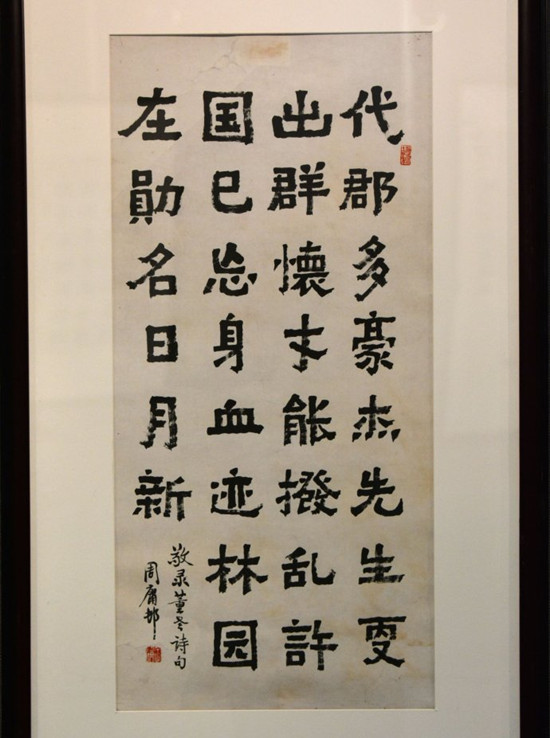 代郡多豪杰先生更
出群懷才能撥乱許
国已忘身血迹林园
在勛名日月新
敬录董老诗句
周庸邨